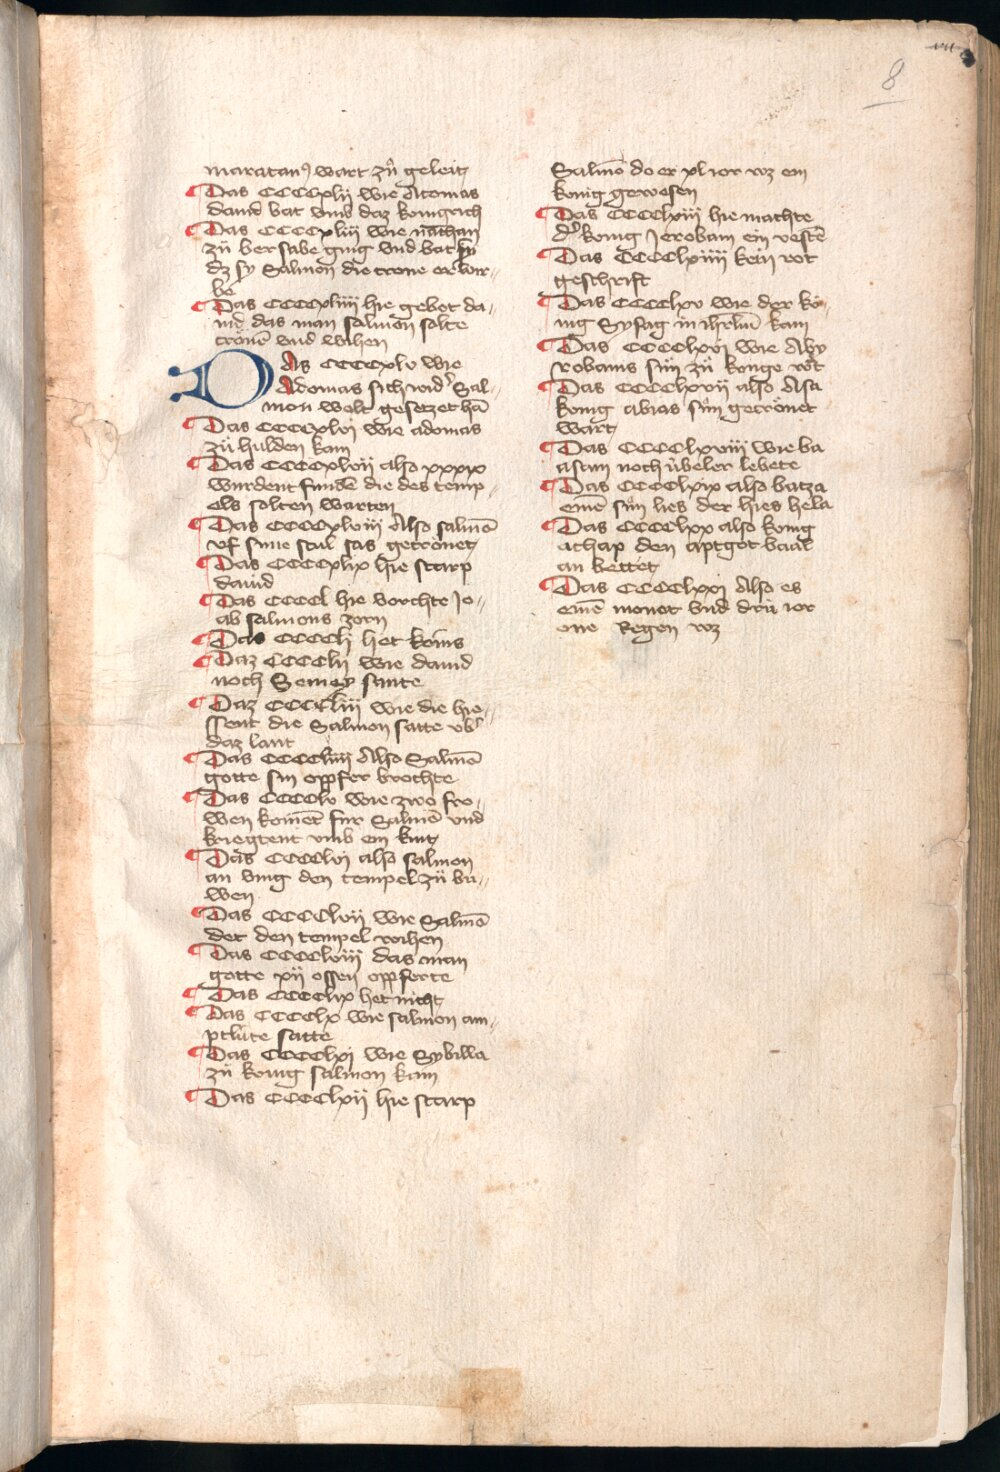 8
maratan⁹ wart zů geleit
Das CCCCxlij wie Atonias
dauid bat vmb daz konigrich
Das CCCCxliij wie nathan
zů bersabe ging vnd bat sÿ
dz sy Salmon die crone erwir⸗
be
Das CCCCxliiij hie gebot da⸗
uid das man salmon solte
crönē vnd wihen
DAs CCCCxlv wie
Adonias sich widˀ Sal⸗
mon wolt gesetzet hā
Das CCCCxlvi wie adonias
zů hulden kam
Das CCCCxlvij also xxxix
wurdent fundē die des temp⸗
els solten warten
Das CCCCxlviij Also salmō
vf sime stul sas gecrönet
Das CCCCxlix hie starp
dauid
Das CCCCl hie vorchte Jo⸗
ab salmons zorn
Das CCCCli het keins
Daz CCCClij wie dauid
noch Semey sante
Daz CCCCliij wie die hie⸗
ssent die Salmon satte vbˀ
daz lant
Das CCCCliiij Also Salmō
gotte sin oppfer brochte
Das CCCClv wie zwo fro⸗
wen komēt für Salmō vnd
kriegtent vmb ein kint
Das CCCClvi also salmon
an ving den tempel zů bu⸗
wen
Das CCCClvij wie Salmō
det den tempel wihen
Das CCCClviij das man
gotte xij ossen oppferte
Das CCCClix het nicht
Das CCCClx wie salmon am⸗
ptlute satte
Das CCCClxi wie Sybilla
zů konig salmon kam
Das CCCClxij hie starp
Salmō do er xl ior wz ein
konig gewesen
Das CCCClxiij hie machte
dˀ konig Jerobam ein vestē
Das CCCClxiiij kein rot
geschrift
Das CCCClxv wie der ko⸗
nig Sysag in ihrlm̄ kam
Das CCCClxvi wie Aby
robams sün zů konge wt
Das CCCClxvij also Asa
konig abias sün gecrönet
wart
Das CCCClxviij wie ba
asam noch übeler lebete
Das CCCClxix also batza
einē sün lies der hies hela
Das CCCClxx also konig
achap den aptgot baal
an bettet
Das CCCClxxi Also es
einē monot vnd drü ior
one Regen wz